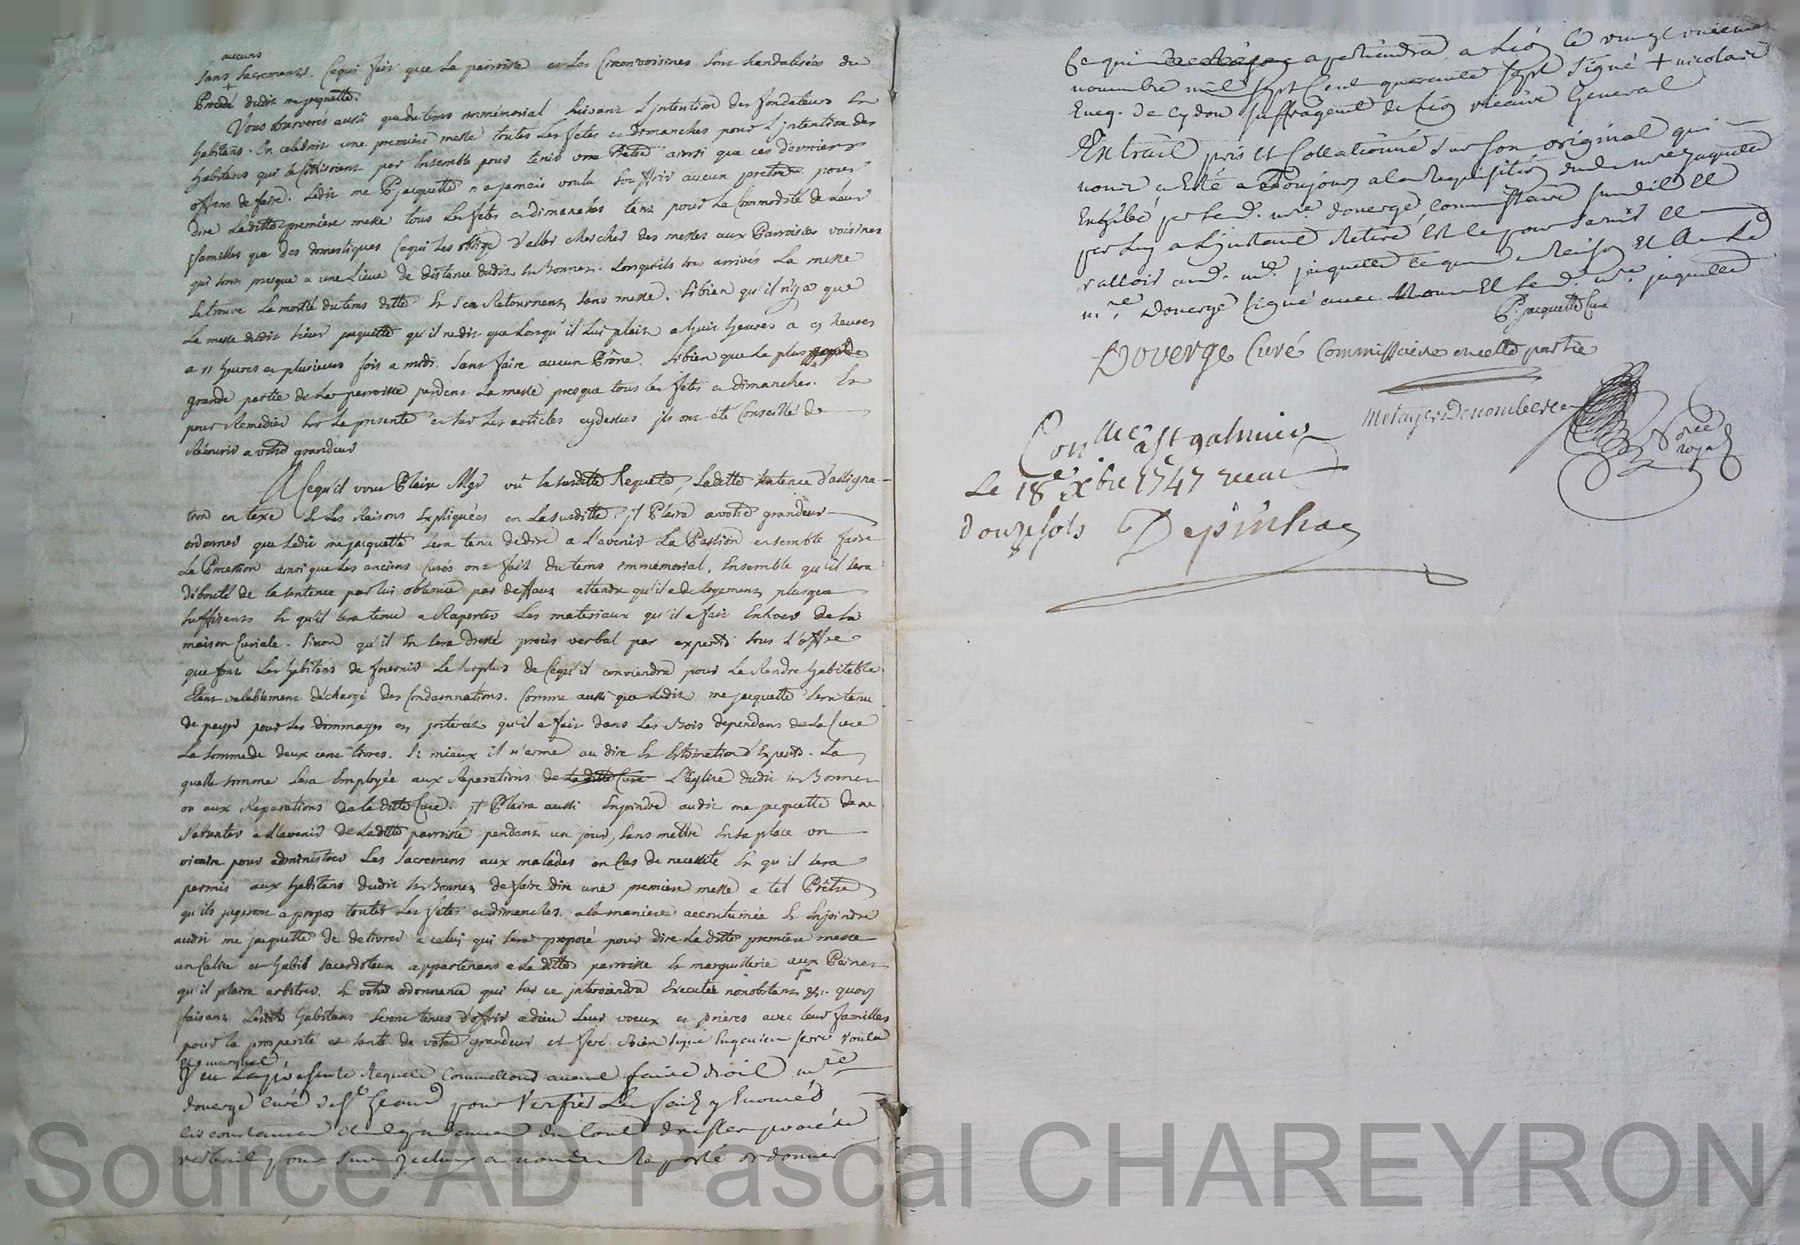 aucuns
sans sacrements. Cequi fait que La parroisse et Les Circonvoisines sont scandalisées du
Procédé dudit me jacquette.
Vous observerés aussi que du tems immémorial suivant L'jntention des fondateurs Et
habitans. On celebroit une première messe toutes Les fetes et dimanches pour L'jntention des
habitans qui se Cottisoient par Ensemble pour tenir un Prêtre ainsi que ces derniers
offrent de faire. Ledit me P. jacquette n'a jamais voulu souffrir aucun prêtre pour
dire Laditte première messe tous Les fetes et dimanches tant pour La Commodité de Leurs
familles que des domestiques Cequi Les oblige d'aller chercher des messes aux Parroisses voisines
qui sont presque a une Lieue de distance dudit St Bonnet. Lorsqu'ils sont arrivés La messe
se trouve La moitié du tems ditte Et s'en Retournent sans messe. Si bien qu'il n'y a que
La messe dudit sieur jacquette qu'il ne dit que Lorsqu'il Lui plait a huit heures a 9 heures
a 11 heures et plusieurs fois a midi. Sans faire aucun Prône. Si bien que La plus
grande partie de La parroisse perdent La messe presque tous Les fetes et dimanches. Et
pour Remedier sur Le présente et sur Les articles cydessus jls ont été Conseillé de
Récourir a votre grandeur
A Cequ'il vous Plaise Mgr vû la susditte Requete, Laditte sentence d'assigna-
tion en taxe Et Les Raisons Expliquées en La susditte. jl Plaira a votre grandeur
ordonner que Ledit me jacquette sera tenu de dire a L'avenir La Passion ensemble faire
La Procession ainsi que Les anciens Curés ont fait du tems immémorial. Ensemble qu'il sera
débouté de La sentence par lui obtenue par deffaut attendu qu'il a de Logement plus que
suffisant Et qu'il sera tenu a Raporter Les materiaux qu'il a fait Enlever de La
maison Curiale. Sinon qu'il En sera dressé procès verbal par experts sous L'offre
que font Les habitans de fournir Le surplus de Cequ'il conviendra pour La Rendre habitable
Etant valablement déchargé des Condamnations. Comme aussi que Ledit me jacquette sera tenu
de payer pour Les dommages et jnterets qu'il a fait dans Les Bois dependans de La Cure
La somme de deux cent Livres. Si mieux il n'aime au dire Et Estimation d'Experts. La
quelle somme sera Employée aux Réparations de La ditte Cure L'Eglise dudit St Bonnet
ou aux Reparations de La ditte Cure. jl Plaira aussi Enjoindre audit me jacquette de ne
s'absenter a L'avenir de Laditte parroisse pendant un jour, sans mettre En sa place un
vicaire pour administrer Les Sacremens aux malades en Cas de necessité Et qu'il sera
permis aux habitans dudit St Bonnet de faire dire une premiere messe a tel Prêtre
qu'ils jugeront a propos toutes Les fetes et dimanches a la maniere accoutumée Et Enjoindre
audit me jacquette de delivrer a celui qui sera proposé pour dire La ditte premiere messe
un Calice et habit Sacerdotaux appartenans a La ditte parroisse Et marguillerie aux Peines
qu'il plaira arbitrer. Et votre ordonnance qui sur ce jnterviendra Executée nonobstant &c. quoy
faisant Lesdits habitans seront tenus d'offrir a dieu Leurs voeux et prieres avec leur familles
pour la prosperité et santé de votre grandeur et feré bien signé
Veu La présente Requete Commettons avant faire droit mre
Doverge Curé de St pour Verifier Les faits y Enoncés
circonstances et dependances du tout dresser procès
verbail pour sur jcelui a nous Raporté ordonner
Ce qui apartiendra, a Lion le vingt
novembre mil sept Cent quarante sept signé + nicolas
Eveq. de Cydon suffragant de Lion vicaire General
Extrait pris et Collationné sur son original qui
nous a Eté a Toujours a la Requisition dud. mre jaquette
Exhibé par led. mre doverge, commissaire susdit Et
par Luy a L'jnstant Retiré Et le pour servir Et
valloir aud. mre jaquette ce que de Raison Et A Led.
mre Doverge signé avec nous Et led. mre jaquette
P. jacquette Curé
Doverge Curé Commissaire encette partie
noree
royal
Conllé a St galmier
Le 18e Xbre 1747 receu
douze sols Depinhac
Source AD Pascal CHAREYRON